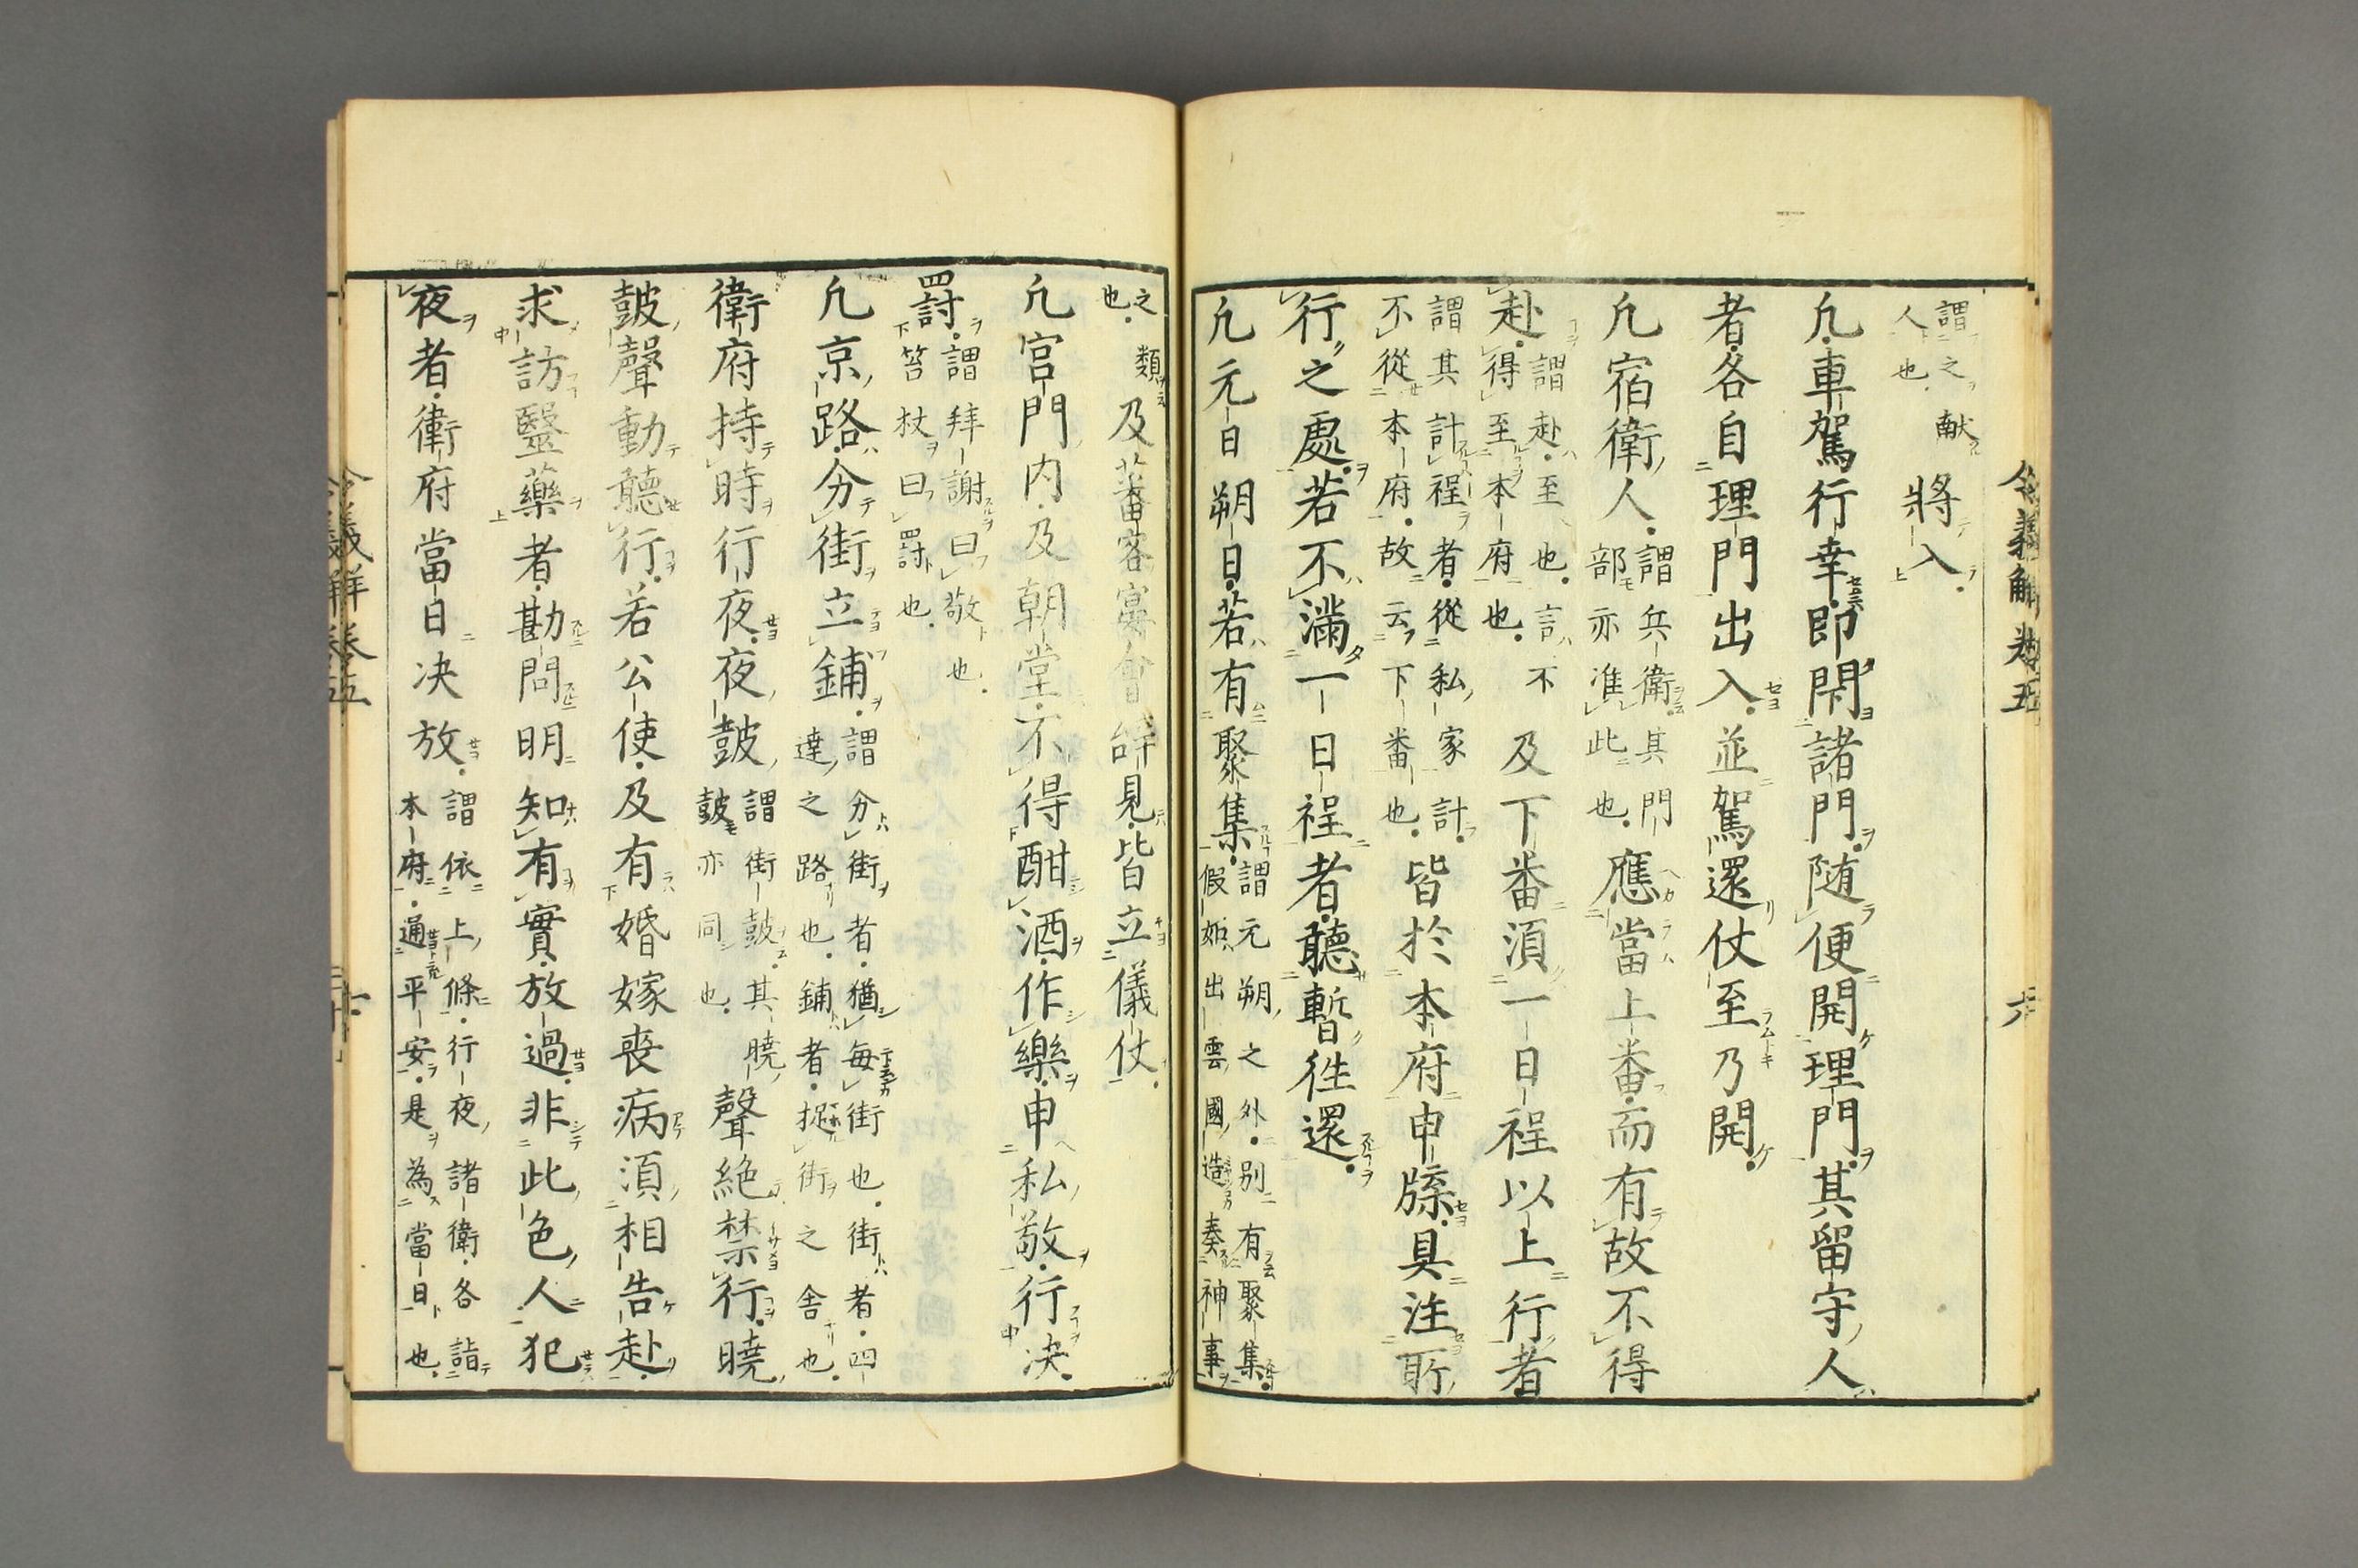 令義解卷五 六
謂之献人也將入
凢車駕行幸即閇諸門随便開理門其留守人
者各自理門出入並駕還仗至乃開
凢宿衛人謂兵衛其門部亦准此也應當上番而有故不得
赴謂赴至也言不得至本府也及下番湏一日程以上行者
謂其計程者從私家計不從本府故云下番也皆於本府申牒具注所
行之處若不滿一日程者聽暫徃還
凢元日朔日若有聚集謂元朔之外別有聚集假如出雲國造奏神事
之類也及蕃客宴會辭見皆立儀仗
凢宮門内及朝堂不得酣酒作樂申私敬行决
罸謂拜謝曰敬也笞杖曰罸也
凢京路分街立鋪謂分街者猶毎街也街者四達之路也鋪者捉街之舍也
衛府持時行夜夜皷謂街皷其曉皷亦同也聲絶禁行曉
皷聲動聽行若公使及有婚嫁喪病湏相告赴
求訪毉藥者勘問明知有實放過非此色人犯
夜者衛府當日决放謂依上條行夜諸衛各詣本府通平安是為當日也
令義解卷五